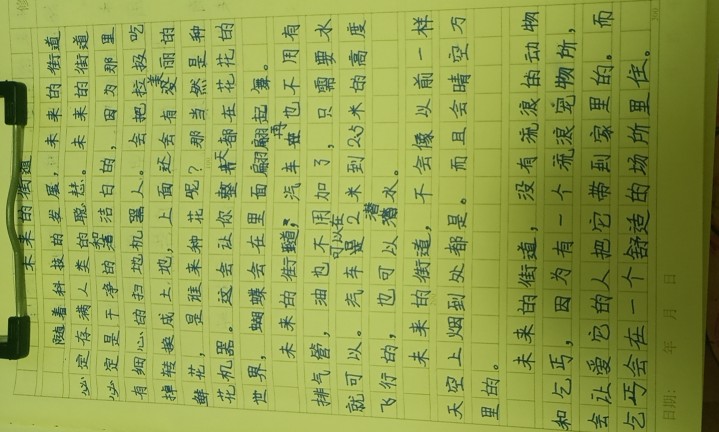 未来的街道
随着科技的发展，未来的街道
必定存满人类的聪慧。未来的街道
必定是干净的和洁白的，因为那里
有细心的扫地机器人。会把垃圾吃
掉转换成土地，上面还会有美丽的
鲜花，是谁来种花呢？那当然是种
花机器。这会让你整天都在花花的
世界，蝴蝶会在里面翩翩起舞。
未来的街道，汽车再也不用有
排气管，油也不用加了，只需要水
就可以。汽车可以在2米到25米的高度
飞行的，也可以潜水。
未来的街道，不会像以前一样
天空上烟到处都是。而且会晴空万
里的。
未来的街道，没有流浪的动物
和乞丐，因为有一个流浪宠物所，
会让爱它的人把它带到家里的。而
乞丐会在一个舒适的场所里住。
日期： 年 月 日